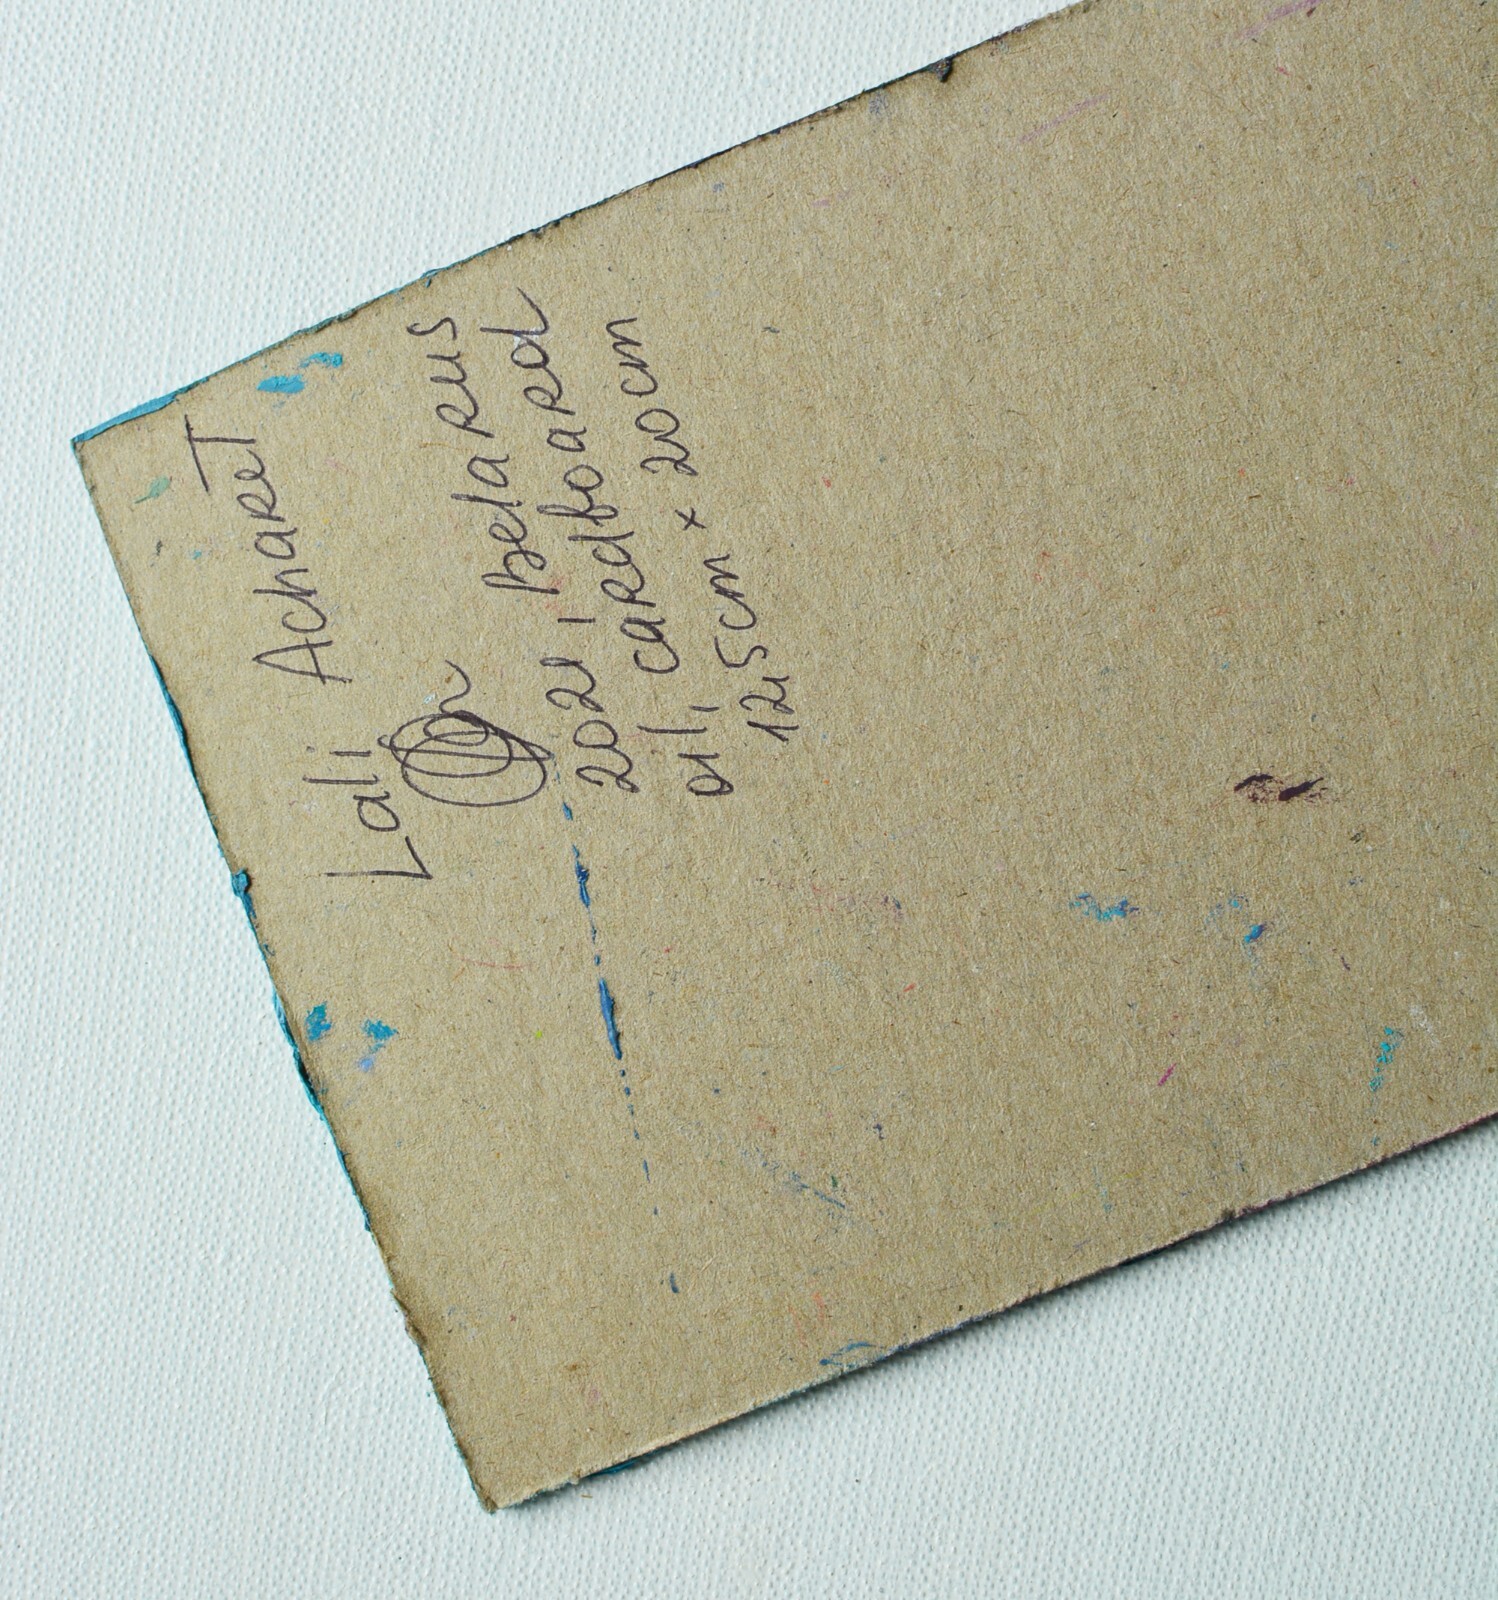 Lali AchareT
2021, Belarus
oil, cardboard
12,5cm x 20cm